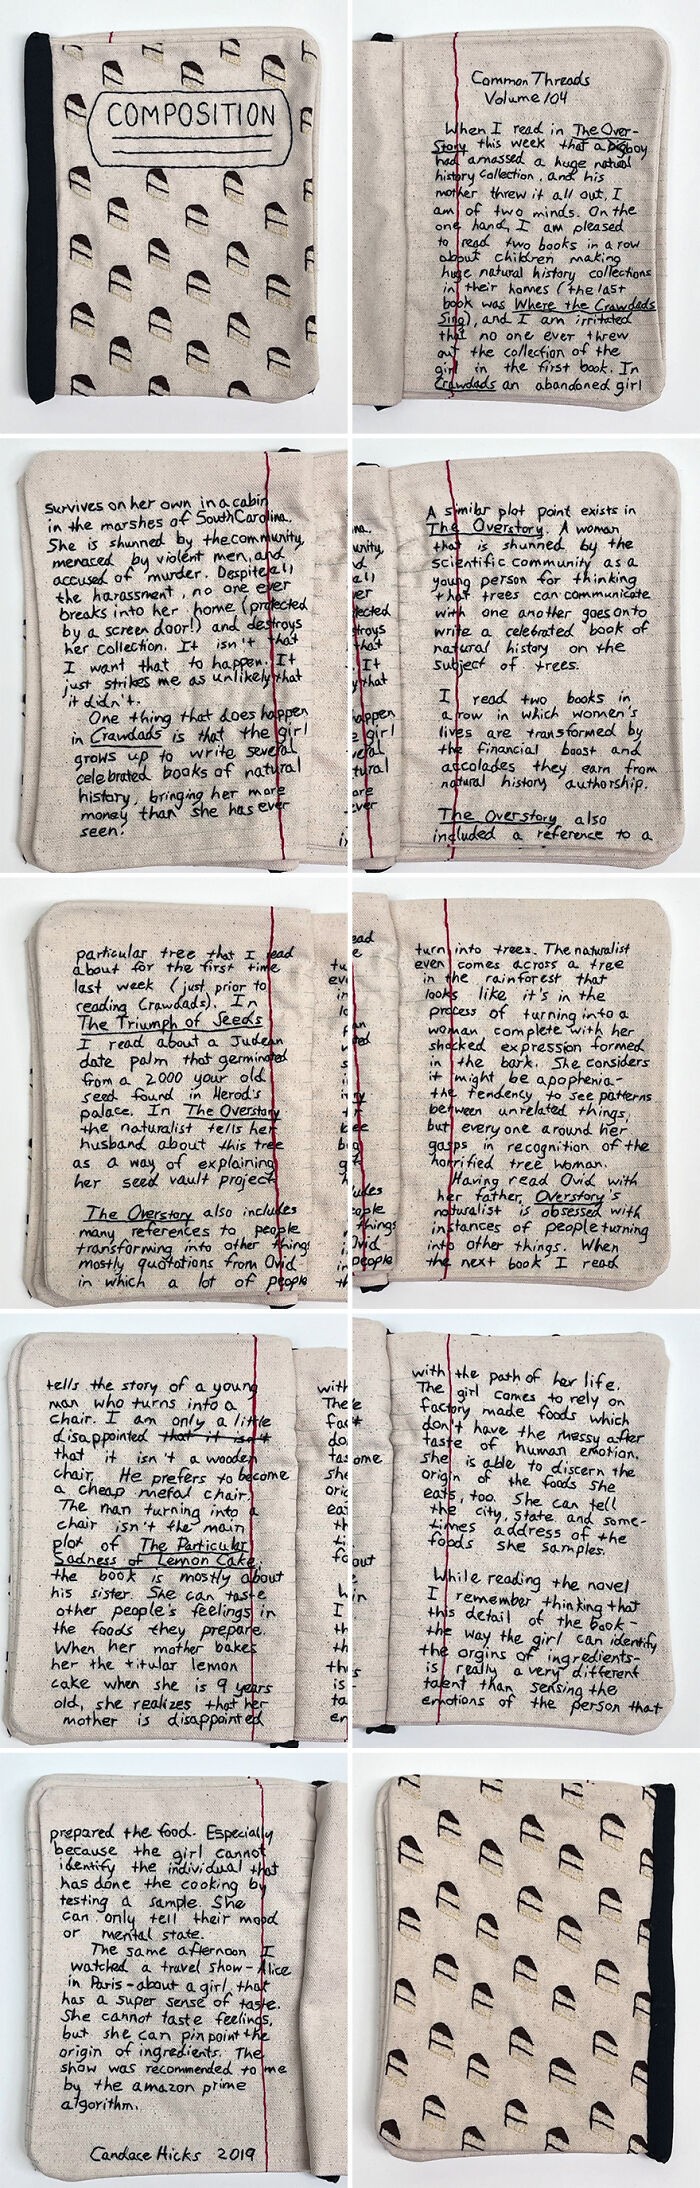 COMPOSITION
Common Threads
Volume 104
When I read in The Over-
Story this week that a boy
had amassed a huge natural
history collection, and his
mother threw it all out, I
am of two minds. On the
one hand, I am pleased
to read two books in a row
about children making
huge natural history collections
in their homes (the last
book was Where the Crawdads
Sing), and I am irritated
that no one ever threw
out the collection of the
girl in the first book. In
Crawdads an abandoned girl
survives on her own in a cabin
in the marshes of South Carolina.
She is shunned by the community,
menaced by violent men, and
accused of murder. Despite all
the harassment, no one ever
breaks into her home (protected
by a screen door!) and destroys
her collection. It isn't that
I want that to happen. It
just strikes me as unlikely that
it didn't.
One thing that does happen
in Crawdads is that the girl
grows up to write several
celebrated books of natural
history, bringing her more
money than she has ever
seen.
A similar plot point exists in
The Overstory. A woman
that is shunned by the
scientific community as a
young person for thinking
that trees can communicate
with one another goes on to
write a celebrated book of
natural history on the
subject of trees.
I read two books in
a row in which women's
lives are transformed by
the financial boost and
accolades they earn from
natural history authorship.
The Overstory also
included a reference to a
particular tree that I read
about for the first time
last week (just prior to
reading Crawdads). In
The Triumph of Seeds
I read about a Judean
date palm that germinated
from a 2000 your old
seed found in Herod's
palace. In The Overstory
the naturalist tells her
husband about this tree
as a way of explaining
her seed vault project.
The Overstory also includes
many references to people
transforming into other things
mostly quotations from Ovid
in which a lot of people
turn into trees. The naturalist
even comes across a tree
in the rainforest that
looks like it's in the
process of turning into a
woman complete with her
shocked expression formed
in the bark. She considers
it might be apophenia-
the tendency to see patterns
between unrelated things,
but everyone around her
gasps in recognition of the
horrified tree woman.
Having read Ovid with
her father, Overstory's
naturalist is obsessed with
instances of people turning
into other things. When
the next book I read
tells the story of a young
man who turns into a
chair. I am only a little
disappointed that it isn't
that it isn't a wooden
chair. He prefers to become
a cheap metal chair.
The man turning into a
chair isn't the main
plot of The Particular
Sadness of Lemon Cake;
the book is mostly about
his sister. She can taste
other people's feelings in
the foods they prepare.
When her mother bakes
her the titular lemon
cake when she is 9 years
old, she realizes that her
mother is disappointed
with the path of her life.
The girl comes to rely on
factory made foods which
don't have the messy after
taste of human emotion.
She is able to discern the
origin of the foods she
eats, too. She can tell
the city, state and some-
times address of the
foods she samples.
While reading the novel
I remember thinking that
this detail of the book-
the way the girl can identify
the orgins of ingredients-
is really a very different
talent than sensing the
emotions of the person that
prepared the food. Especially
because the girl cannot
identify the individual that
has done the cooking by
testing a sample. She
can only tell their mood
or mental state.
The same afternoon I
watched a travel show - Alice
in Paris - about a girl, that
has a super sense of taste.
She cannot taste feelings,
but she can pinpoint the
origin of ingredients. The
show was recommended to me
by the amazon prime
algorithm.
Candace Hicks 2019